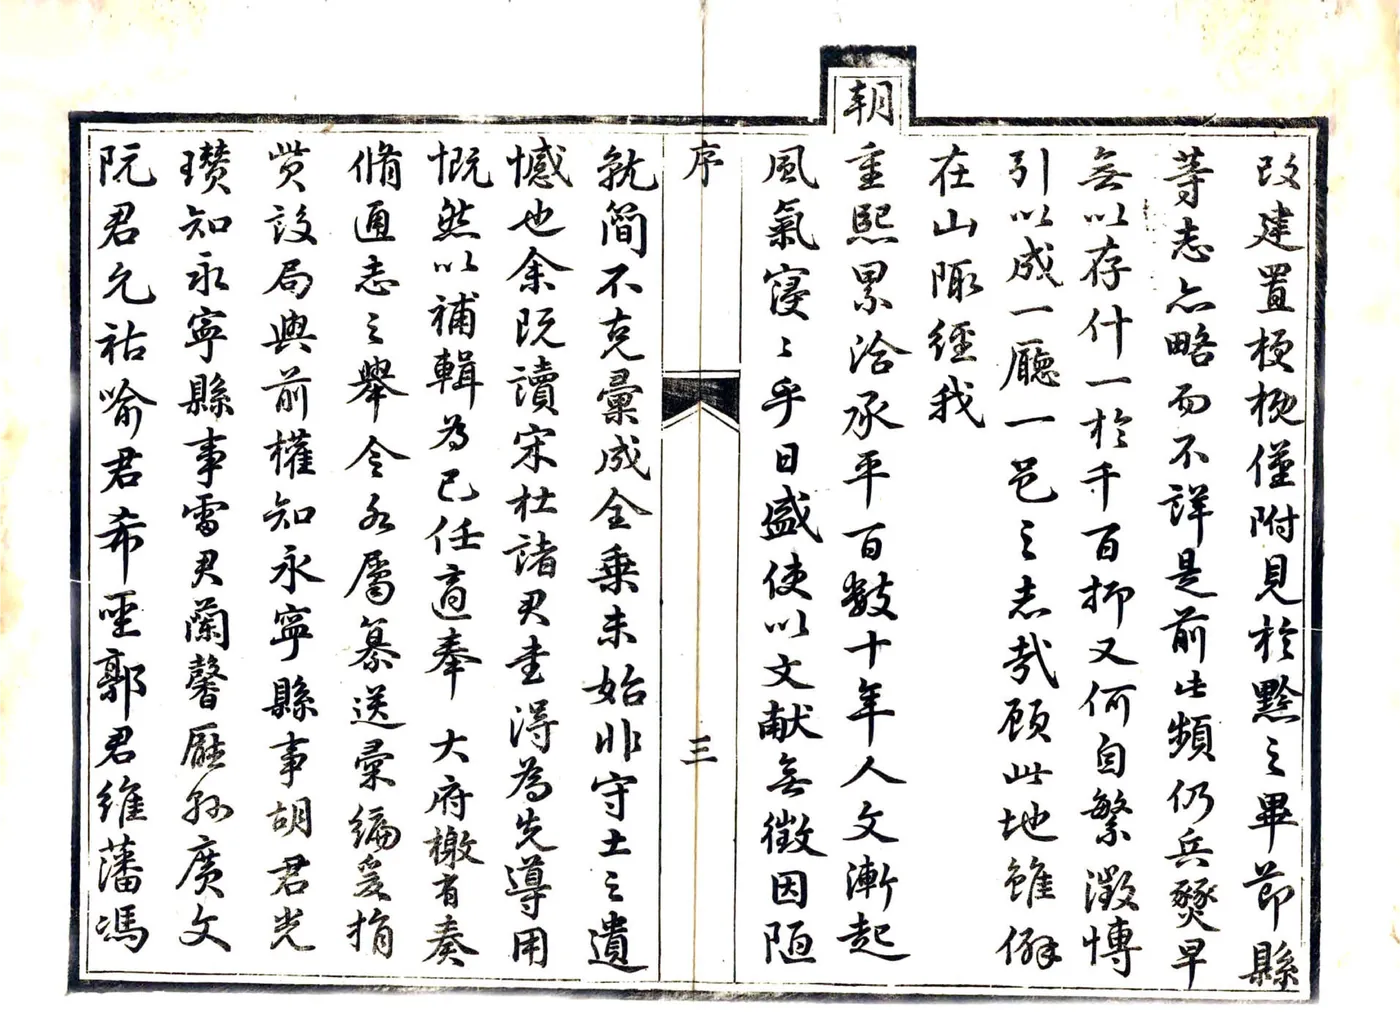 改建置梗概僅附見於黔之畢節縣
等志亦略而不詳是前此頻仍兵燹早
無以存什一於千百抑又何自繁徵博
引以成一廳一邑之志哉顧此地雖僻
在山陬經我
朝
重熙累洽承平百數十年人文漸起
風氣寖〻乎日盛使以文献無徵因陋
序
三
就簡不克彙成全乗未始非守土之遺
憾也余既讀宋杜諸君書得為先導用
慨然以補輯為己任適奉 大府檄有奏
脩通志之舉令各屬纂送彙編爰捐
貲設局與前權知永寧縣事胡君光
瓚知永寧縣事雷君蘭馨廳孫廣文
阮君允祐喻君希聖郭君維藩馮